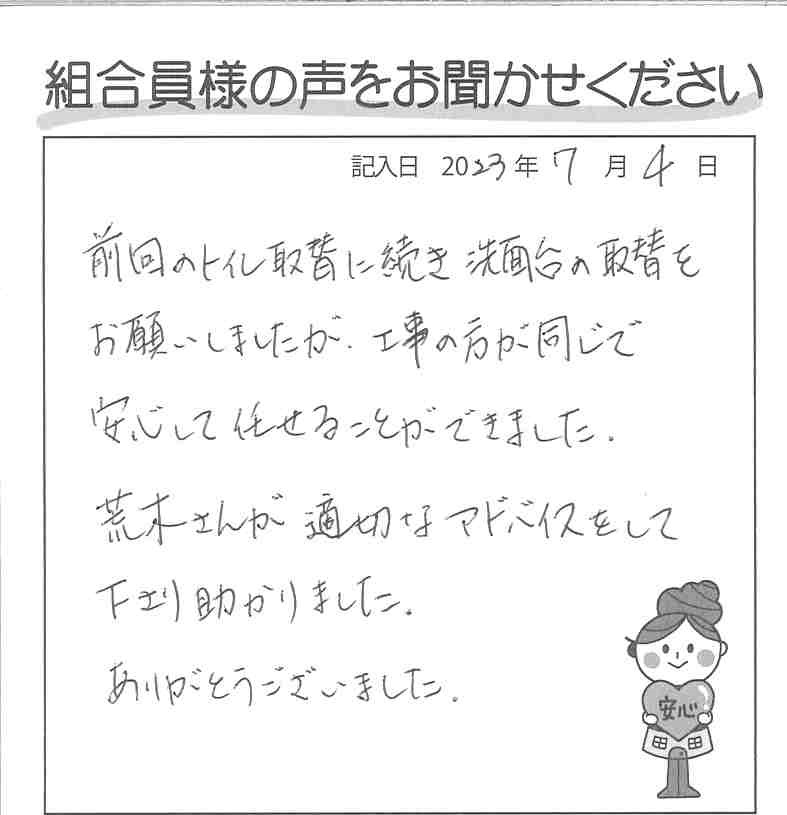 組合員様の声をお聞かせください
記入日 2023年 7 月 4 日
前回のトイレ取替に続き 洗面台の取替を
お願いしましたが、工事の方が同じで
安心して任せることができました。
荒木さんが 適切なアドバイスをして
下さり助かりました。
ありがとうございました。
安心